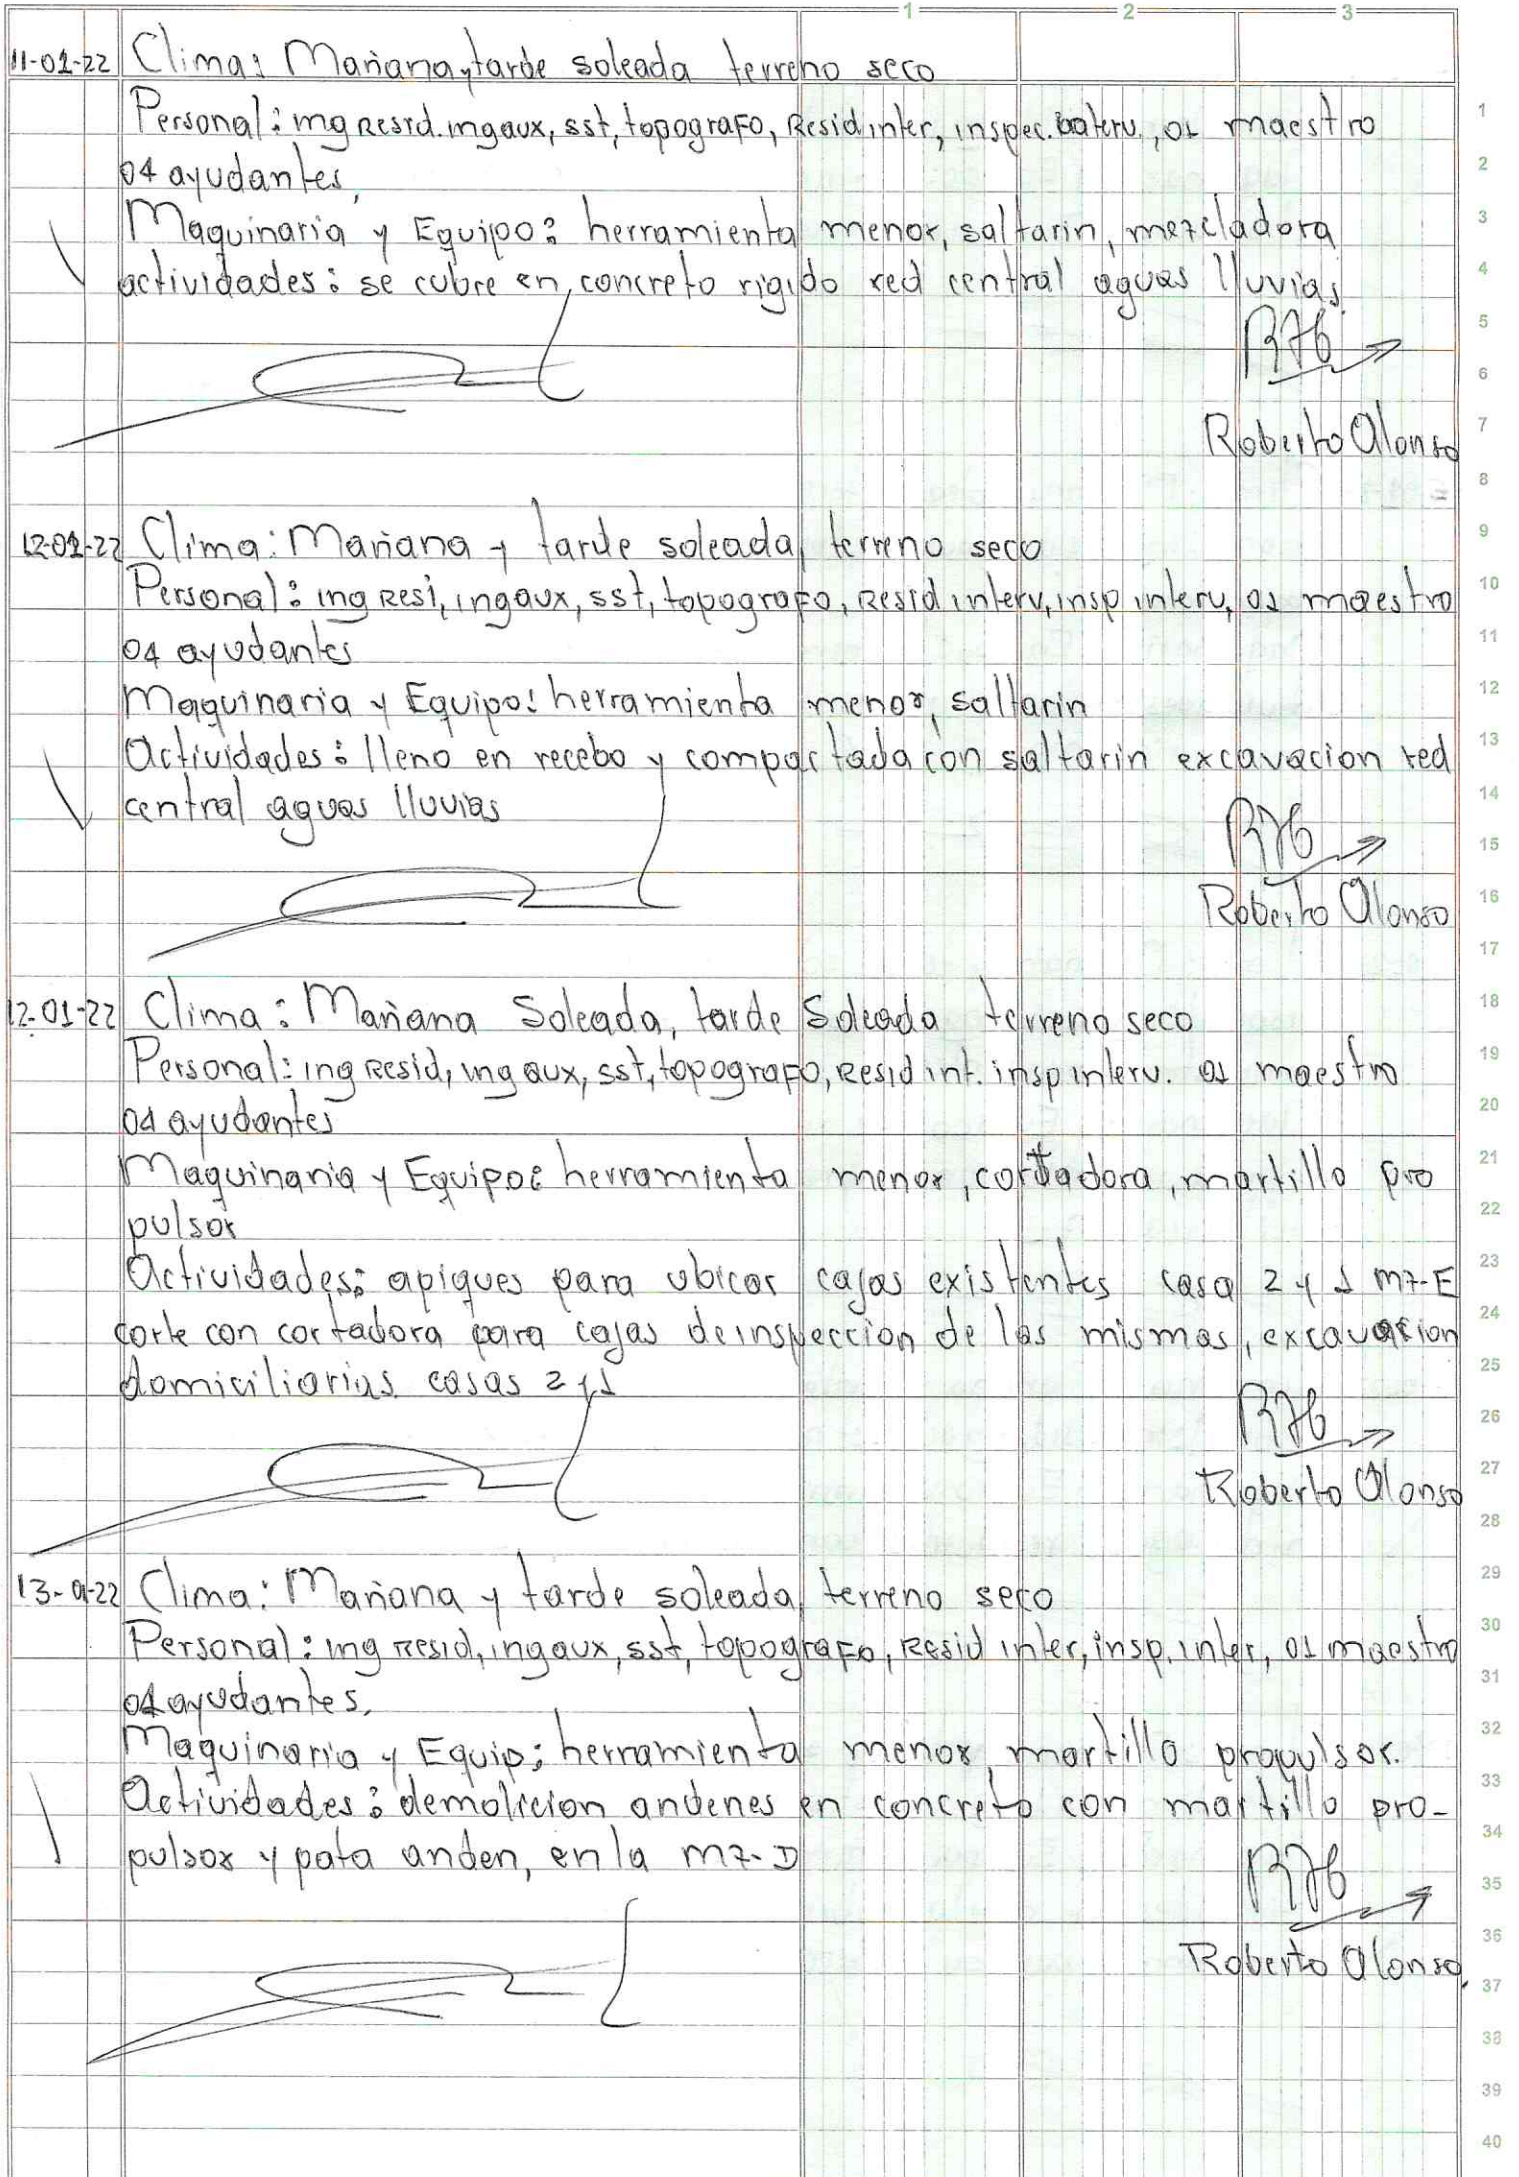 1 2 3
11-01-22 Clima: Mañana y tarde soleada terreno seco
Personal: ing Resid. ing aux, sst, topografo, Resid inter, inspec. , 01 maestro
04 ayudantes,
Maquinaria y Equipo: herramienta menor, saltarin, mezcladora
actividades: se cubre en concreto rigido red central aguas lluvias.
Roberto Alonso
12-01-22 Clima: Mañana y tarde soleada terreno seco
Personal: ing Resi, ing aux, sst, topografo, Resid interv, insp interv, 01 maestro
04 ayudantes
Maquinaria y Equipo: herramienta menor, saltarin
Actividades: lleno en recebo y compactada con saltarin excavacion red
central aguas lluvias
Roberto Alonso
12-01-22 Clima: Mañana Soleada, tarde Soleada terreno seco
Personal: ing Resid, ing aux, sst, topografo, Resid int. insp interv. 01 maestro
04 ayudantes
Maquinaria y Equipo: herramienta menor, cortadora, martillo pro
pulsor
Actividades: apiques para ubicar cajas existentes casa 2 y 1 mz-E
corte con cortadora para cajas de inspeccion de las mismas, excavacion
domiciliarias casas 2 y 1
Roberto Alonso
13-01-22 Clima: Mañana y tarde soleada terreno seco
Personal: ing resid, ing aux, sst, topografo, Resid inter, insp. inter, 01 maestro
04 ayudantes.
Maquinaria y Equip: herramienta menor, martillo propulsor.
Actividades: demolicion andenes en concreto con martillo pro-
pulsor y pata anden, en la mz-D
Roberto Alonso.
1
2
3
4
5
6
7
8
9
10
11
12
13
14
15
16
17
18
19
20
21
22
23
24
25
26
27
28
29
30
31
32
33
34
35
36
37
38
39
40